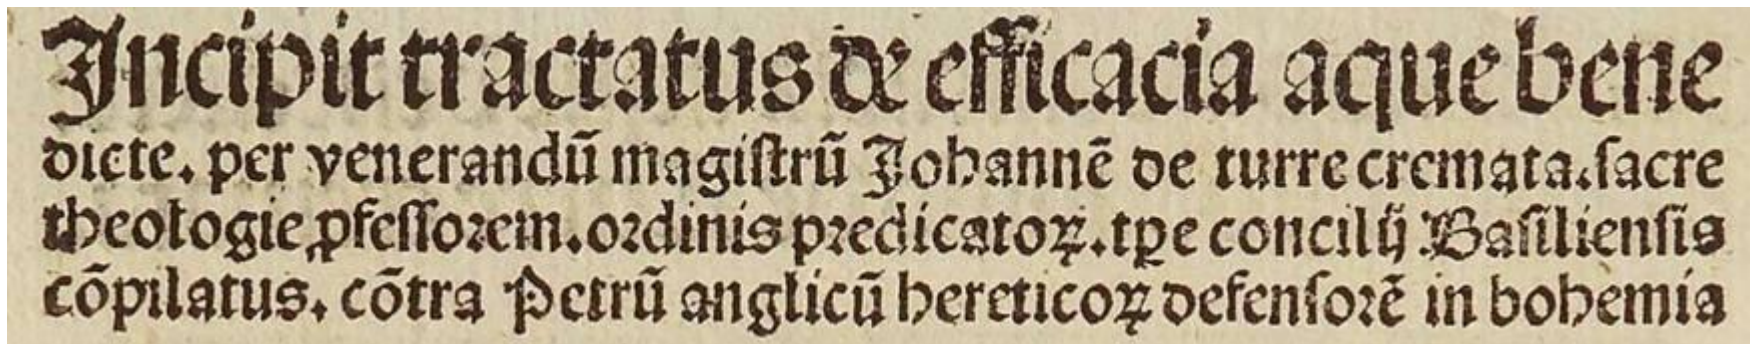 Incipit tractatus de efficacia aque bene
dicte. per venerandū magiſtrū Johannē de turre cremata. ſacre
theologie ꝓfeſſoꝛem. oꝛdinis pꝛedicatoꝝ. tꝑe concilij Baſilienſis
cōpilatus. cōtra Petrū anglicū hereticoꝝ defenſoꝛē in bohemia